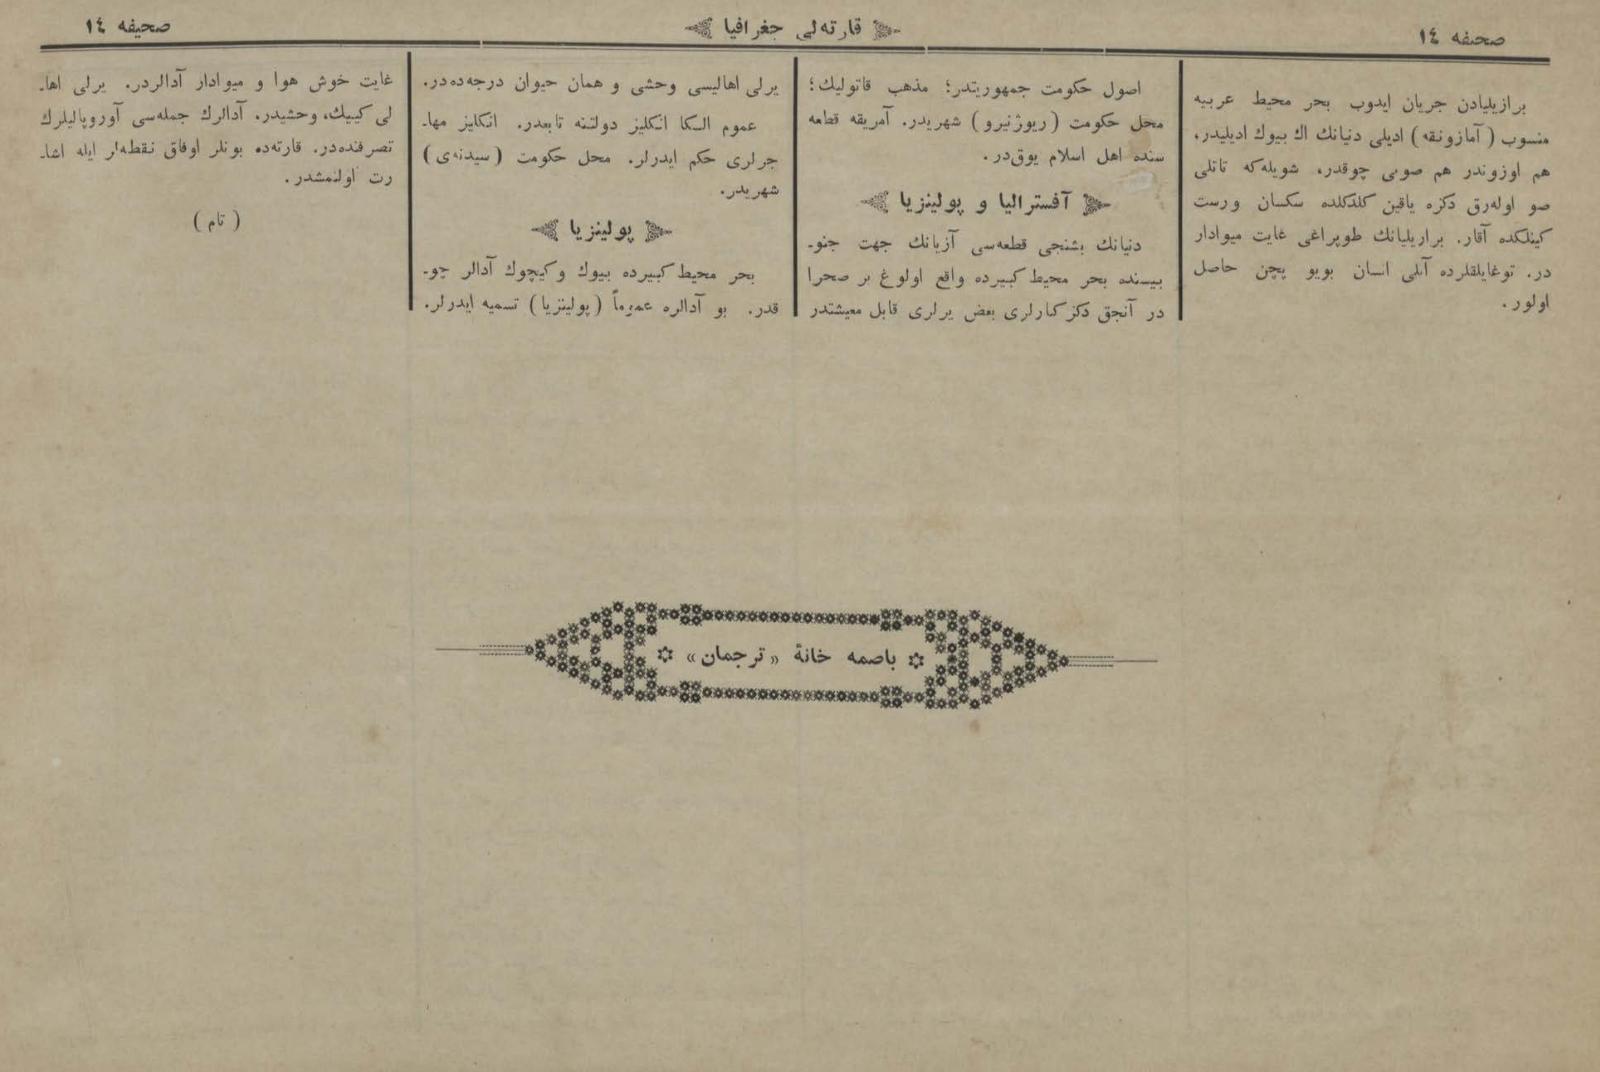 صحیفه ١٤
قارته‌لی جغرافیا
صحیفه ١٤
برازیلیادن جریان ایدوب بحر محیط عربیه
منسوب (آمازونقه) ادیلی دنیانك اك بیوك ادیلیدر،
هم اوزوندر هم صویی چوقدر، شویله‌که تاتلی
صو اوله‌رق دکزه یاقین کلدکلده سکسان ورست
کینلکده آقار. برازیلیانك طوپراغی غایت میوادار
در. توغایلقلرده آتلی انسان بویو پچن حاصل
اولور.
اصول حکومت جمهوریتدر؛ مذهب قاتولیك؛
محل حکومت (ریوژنیرو) شهریدر. آمریقه قطعه
سنده اهل اسلام یوق‌در.
آفسترالیا و پولینزیا
دنیانك بشنجی قطعه‌سی آزیانك جهت جنو۔
بیسنده بحر محیط کبیرده واقع اولوغ بر صحرا
در آنجق دکز کنارلری بعض یرلری قابل معیشتدر
یرلی اهالیسی وحشی و همان حیوان درجه‌ده‌در.
عموم السکا انکلیز دولتنه تابعدر. انکلیز مها۔
جرلری حکم ایدرلر. محل حکومت (سیدنه‌ی)
شهریدر.
پولینزیا
بحر محیط کبیرده بیوك و کیچوك آدالر چو۔
قدر. بو آدالره عموماً (پولینزیا) تسمیه ایدرلر.
غایت خوش هوا و میوادار آدالردر. یرلی اها۔
لی کییك، وحشیدر. آدالرك جمله‌سی آوروپالیلرك
تصرفنده‌در. قارته‌ده بونلر اوفاق نقطه‌لر ایله اشا۔
رت اولنمشدر.
(تام)
باصمه خانهٔ «ترجمان»